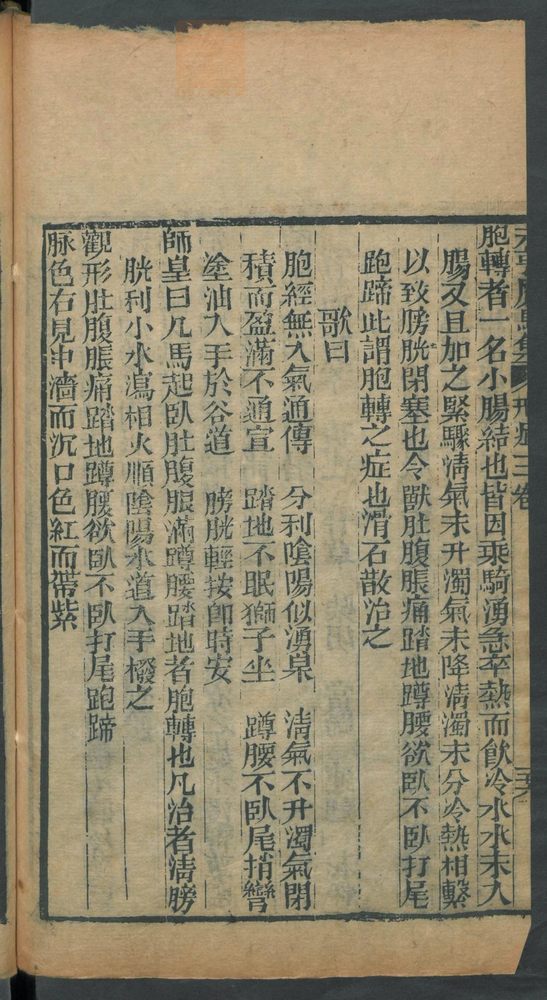 元亨療馬集 形症三卷
胞轉者一名小腸結也皆因乘騎湧急卒熱而飲冷水水未入
腸又且加之緊驟淸氣未升濁氣未降淸濁未分冷熱相擊
以致膀胱閉塞也令獸肚腹脹痛踏地蹲腰欲臥不臥打尾
跑蹄此謂胞轉之症也滑石散治之
歌曰
胞經無入氣通傳 分利陰陽似湧泉 淸氣不升濁氣閉
積而盈滿不通宣 踏地不眠獅子坐 蹲腰不臥尾捎彎
塗油入手於谷道 膀胱輕按卽時安
師皇曰凡馬起臥肚腹脹滿蹲腰踏地者胞轉也凡治者淸膀
胱利小水瀉相火順陰陽水道入手撥之
觀形肚腹脹痛踏地蹲腰欲臥不臥打尾跑蹄
脉色右見中濇而沉口色紅而帶紫